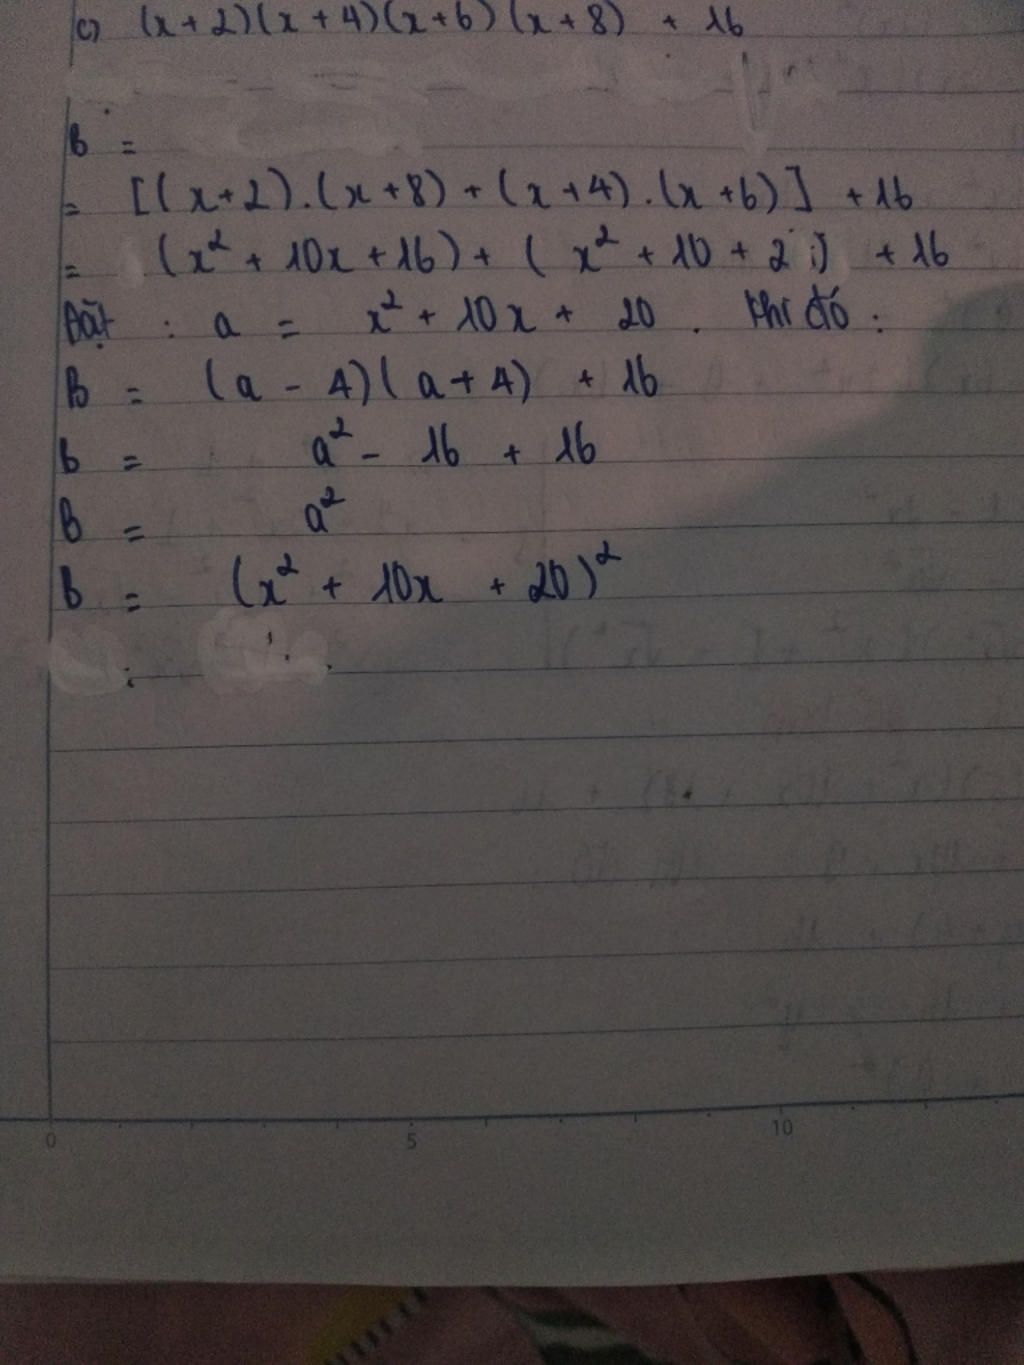 c) (x+2)(x+4)(x+6)(x+8) + 16
B =
= [(x+2).(x+8) + (x+4).(x+6)] + 16
= (x² + 10x + 16) + (x² + 10 + 2 ) + 16
Đặt : a = x² + 10x + 20 . Khi đó :
B = (a - 4)(a + 4) + 16
B = a² - 16 + 16
B = a²
B = (x² + 10x + 20)²
0 5 10